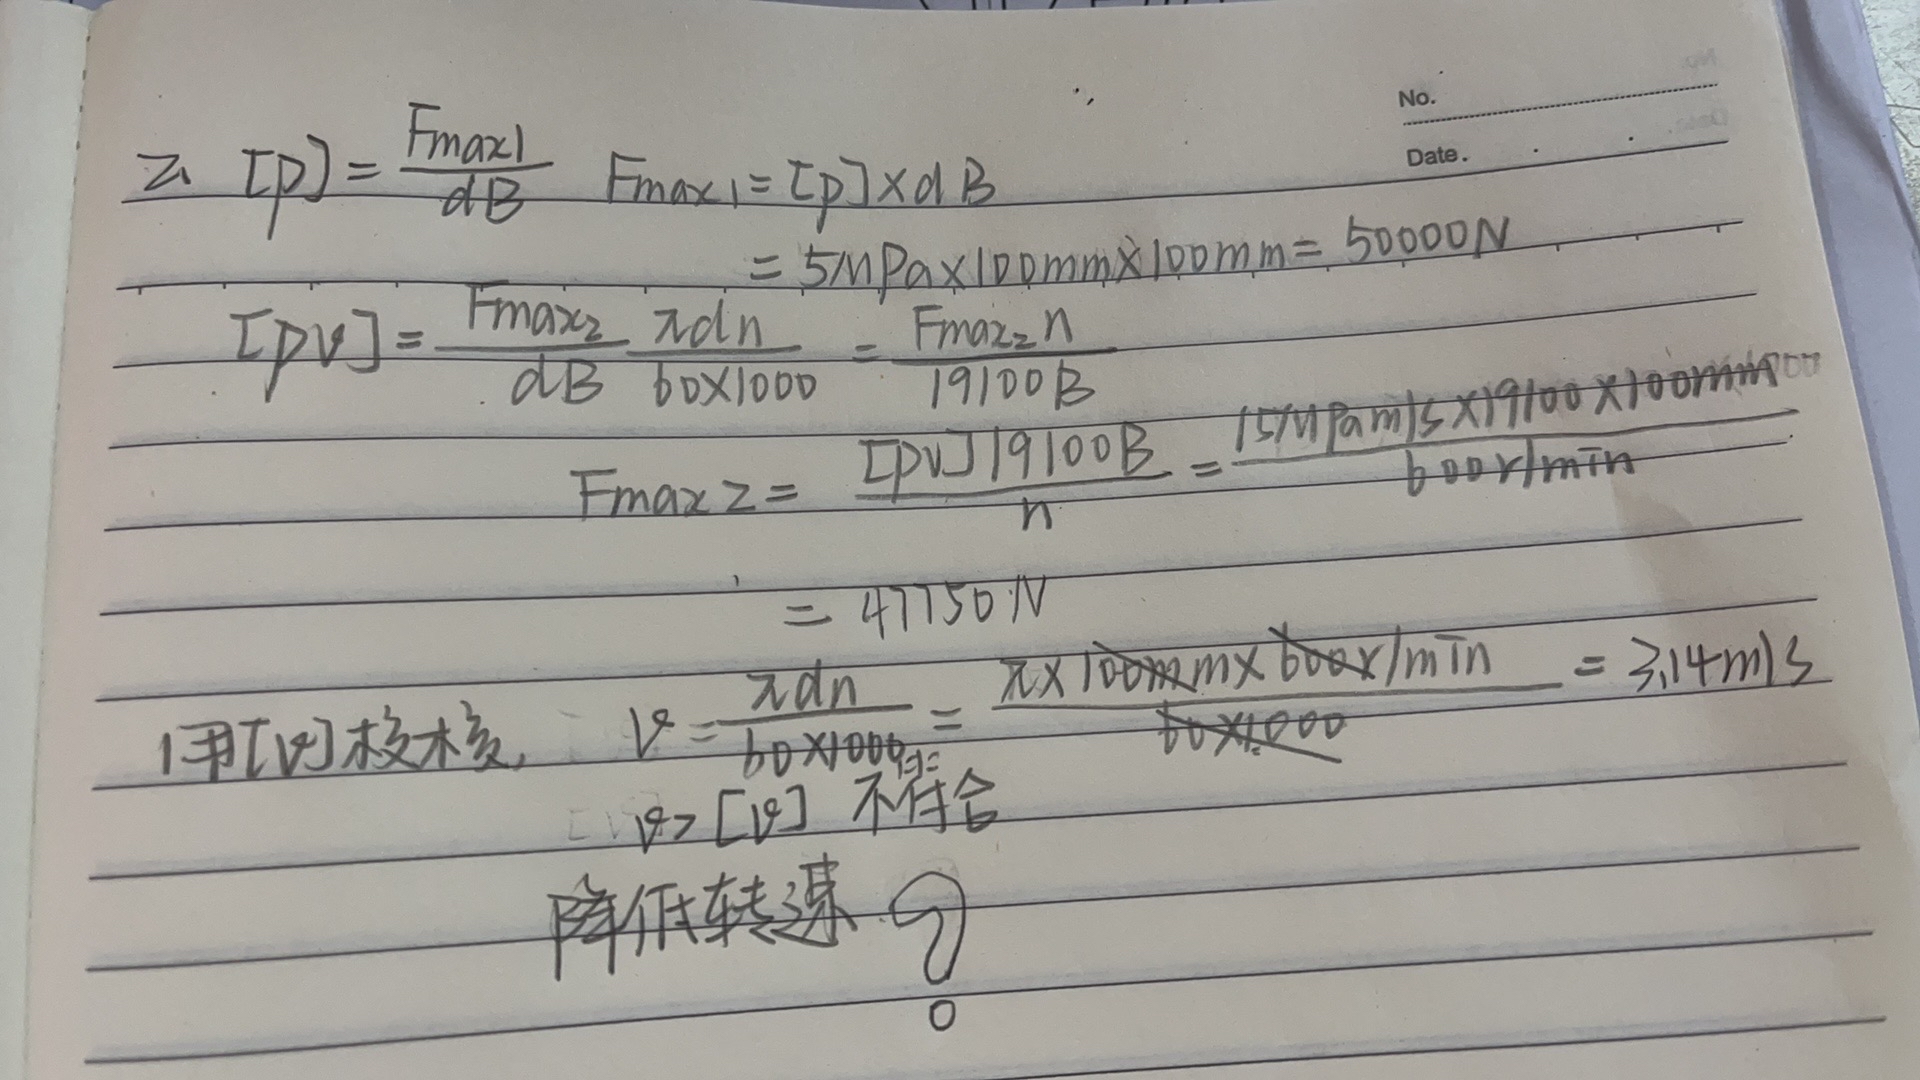 No.
Date.
2. [p] = Fmax1 / dB  Fmax1 = [p]×dB
= 5MPa×100mm×100mm = 50000N
[pv] = Fmax2 / dB · πdn / 60×1000 = Fmax2 n / 19100B
Fmax2 = [pv]19100B / n = 15MPam/s×19100×100mm / 600r/min
= 47750N
用[v]校核, v = πdn / 60×1000 = π×100mm×600r/min / 60×1000 = 3.14m/s
v>[v] 不符合
降低转速?